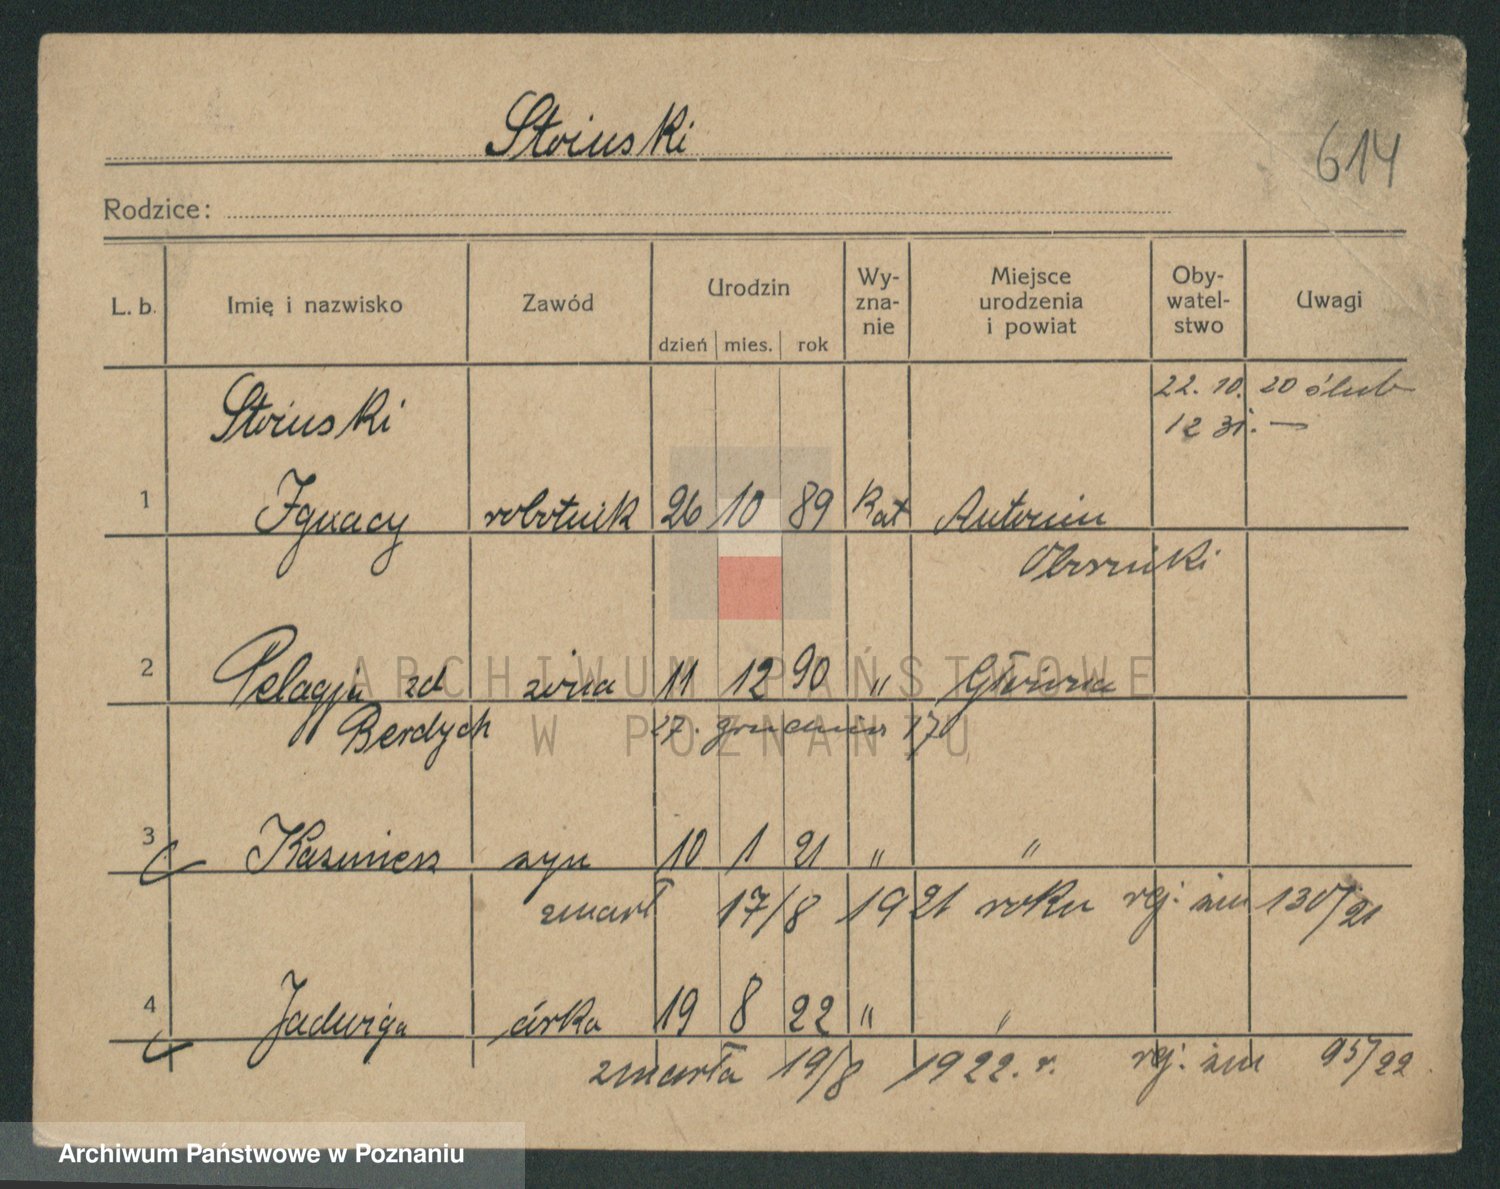 Stoiński
614
Rodzice:
L. b. Imię i nazwisko Zawód Urodzin dzień mies. rok Wy-zna-nie Miejsce urodzenia i powiat Oby-watel-stwo Uwagi
22. 10. 20 ślub
Stoiński
12
1 Ignacy robotnik 26 10 89 Kat Antonin
Oborniki
2 Pelagja zd żona 11 12 90 " Główna
Berdych 17. grudnia
3 Kazimierz syn 10 1 21 " "
zmarł 17/8 1921 roku rej. zm 130/21
4 Jadwiga córka 19 8 22 " "
zmarła 19/8 1922. r. rej. zm 95/22
ARCHIWUM PAŃSTWOWE
W POZNANIU
Archiwum Państwowe w Poznaniu